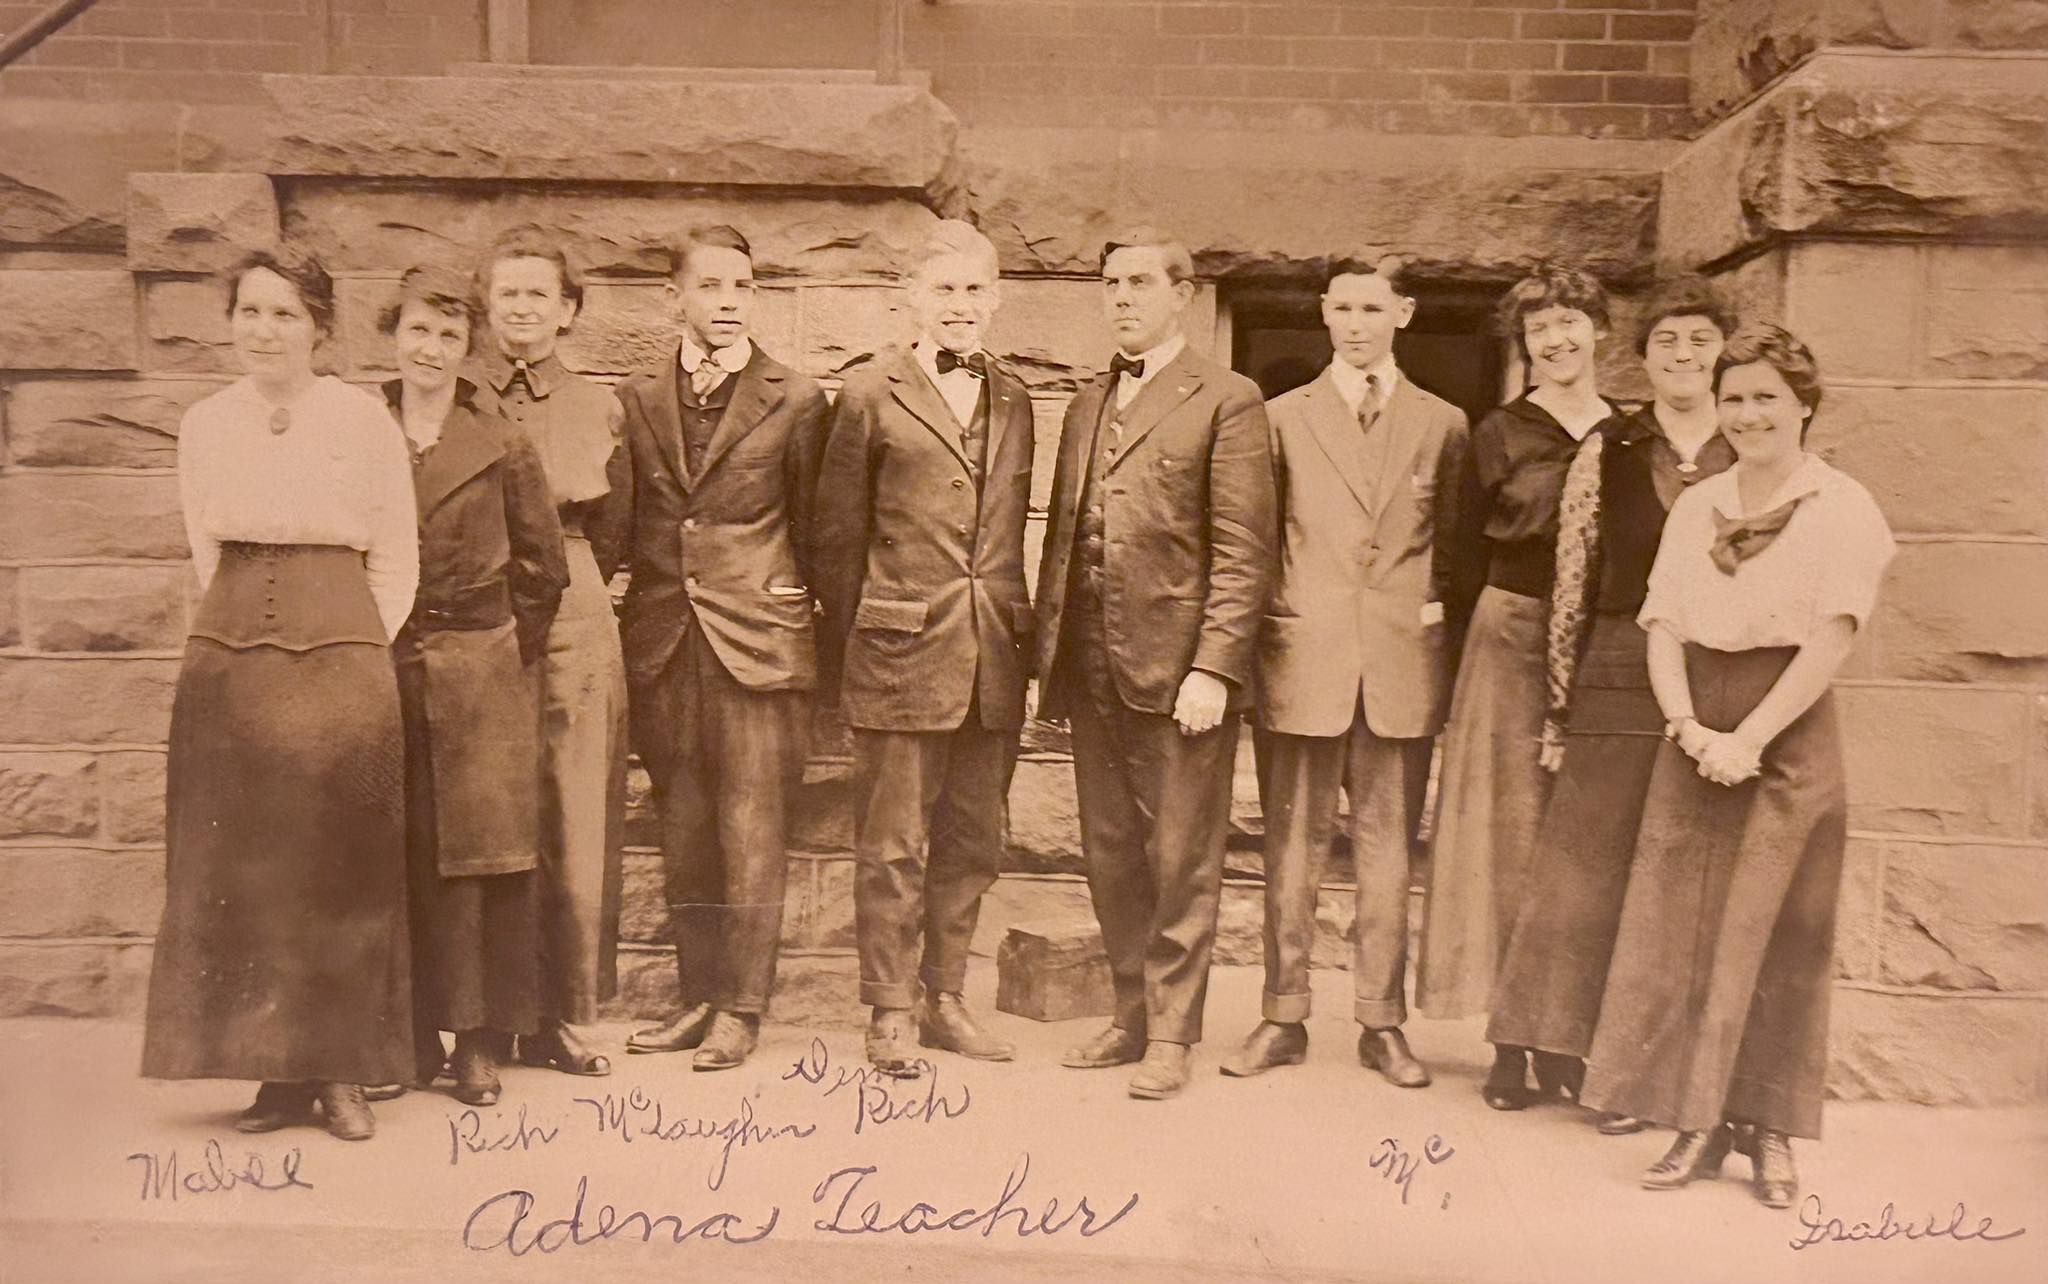 Mabel
Rich McLaughin
Rich
Adena Teacher
Mc
Isabelle